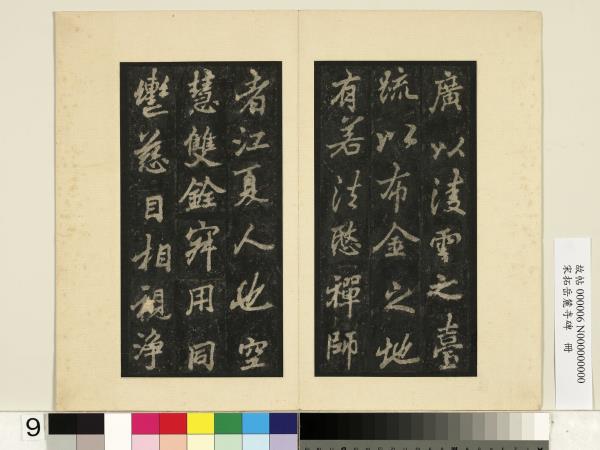 廣以淩雲之臺
疏以布金之地
有若法愍禪師
者江夏人也空
慧雙銓寂用同
轡慈目相視淨
故帖 000006 N000000000
宋拓岳麓寺碑 冊
9